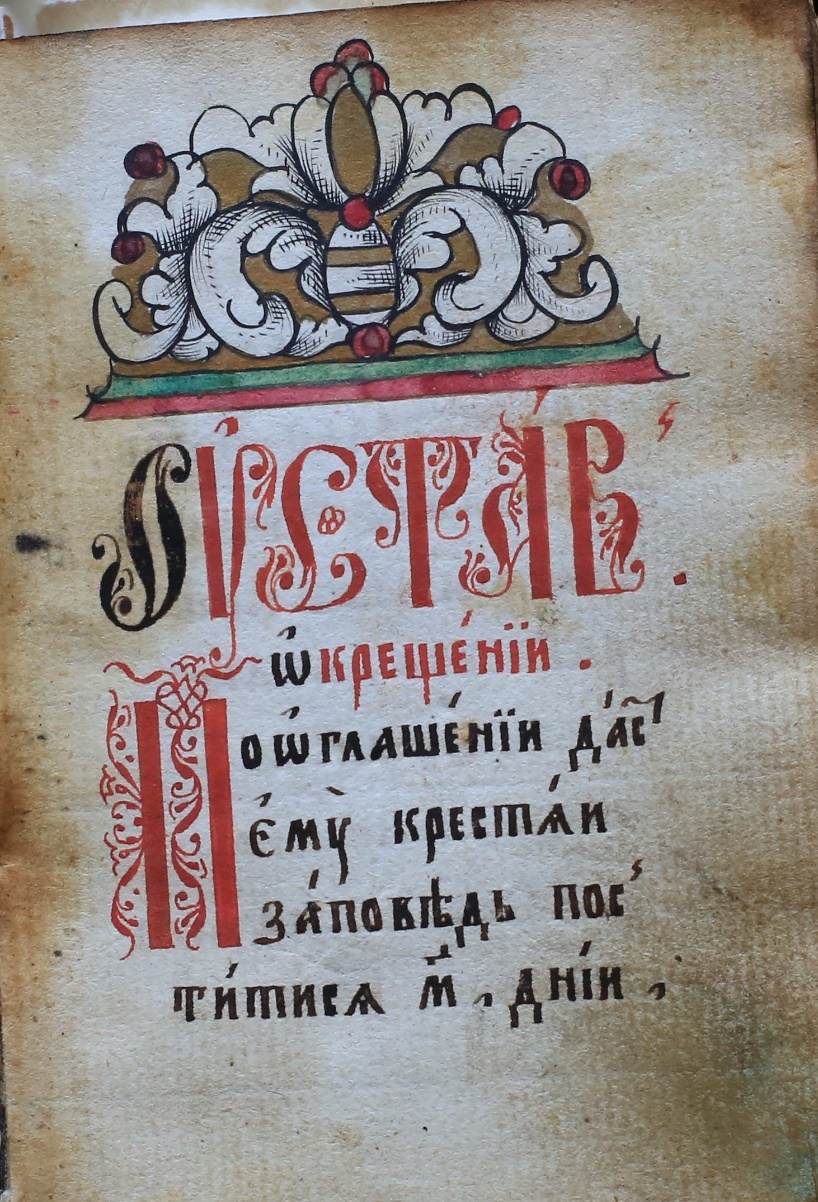 Оу҆ста́въ.
ѡ҆ креще́нїи.
Поѡ҆глаше́нїи да́стъ
є҆мꙋ̀ крестѧ́и
за́повѣдь пос
ти́тисѧ м҃. дні́и,